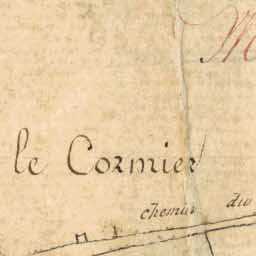 M
le Cormier
chemin du